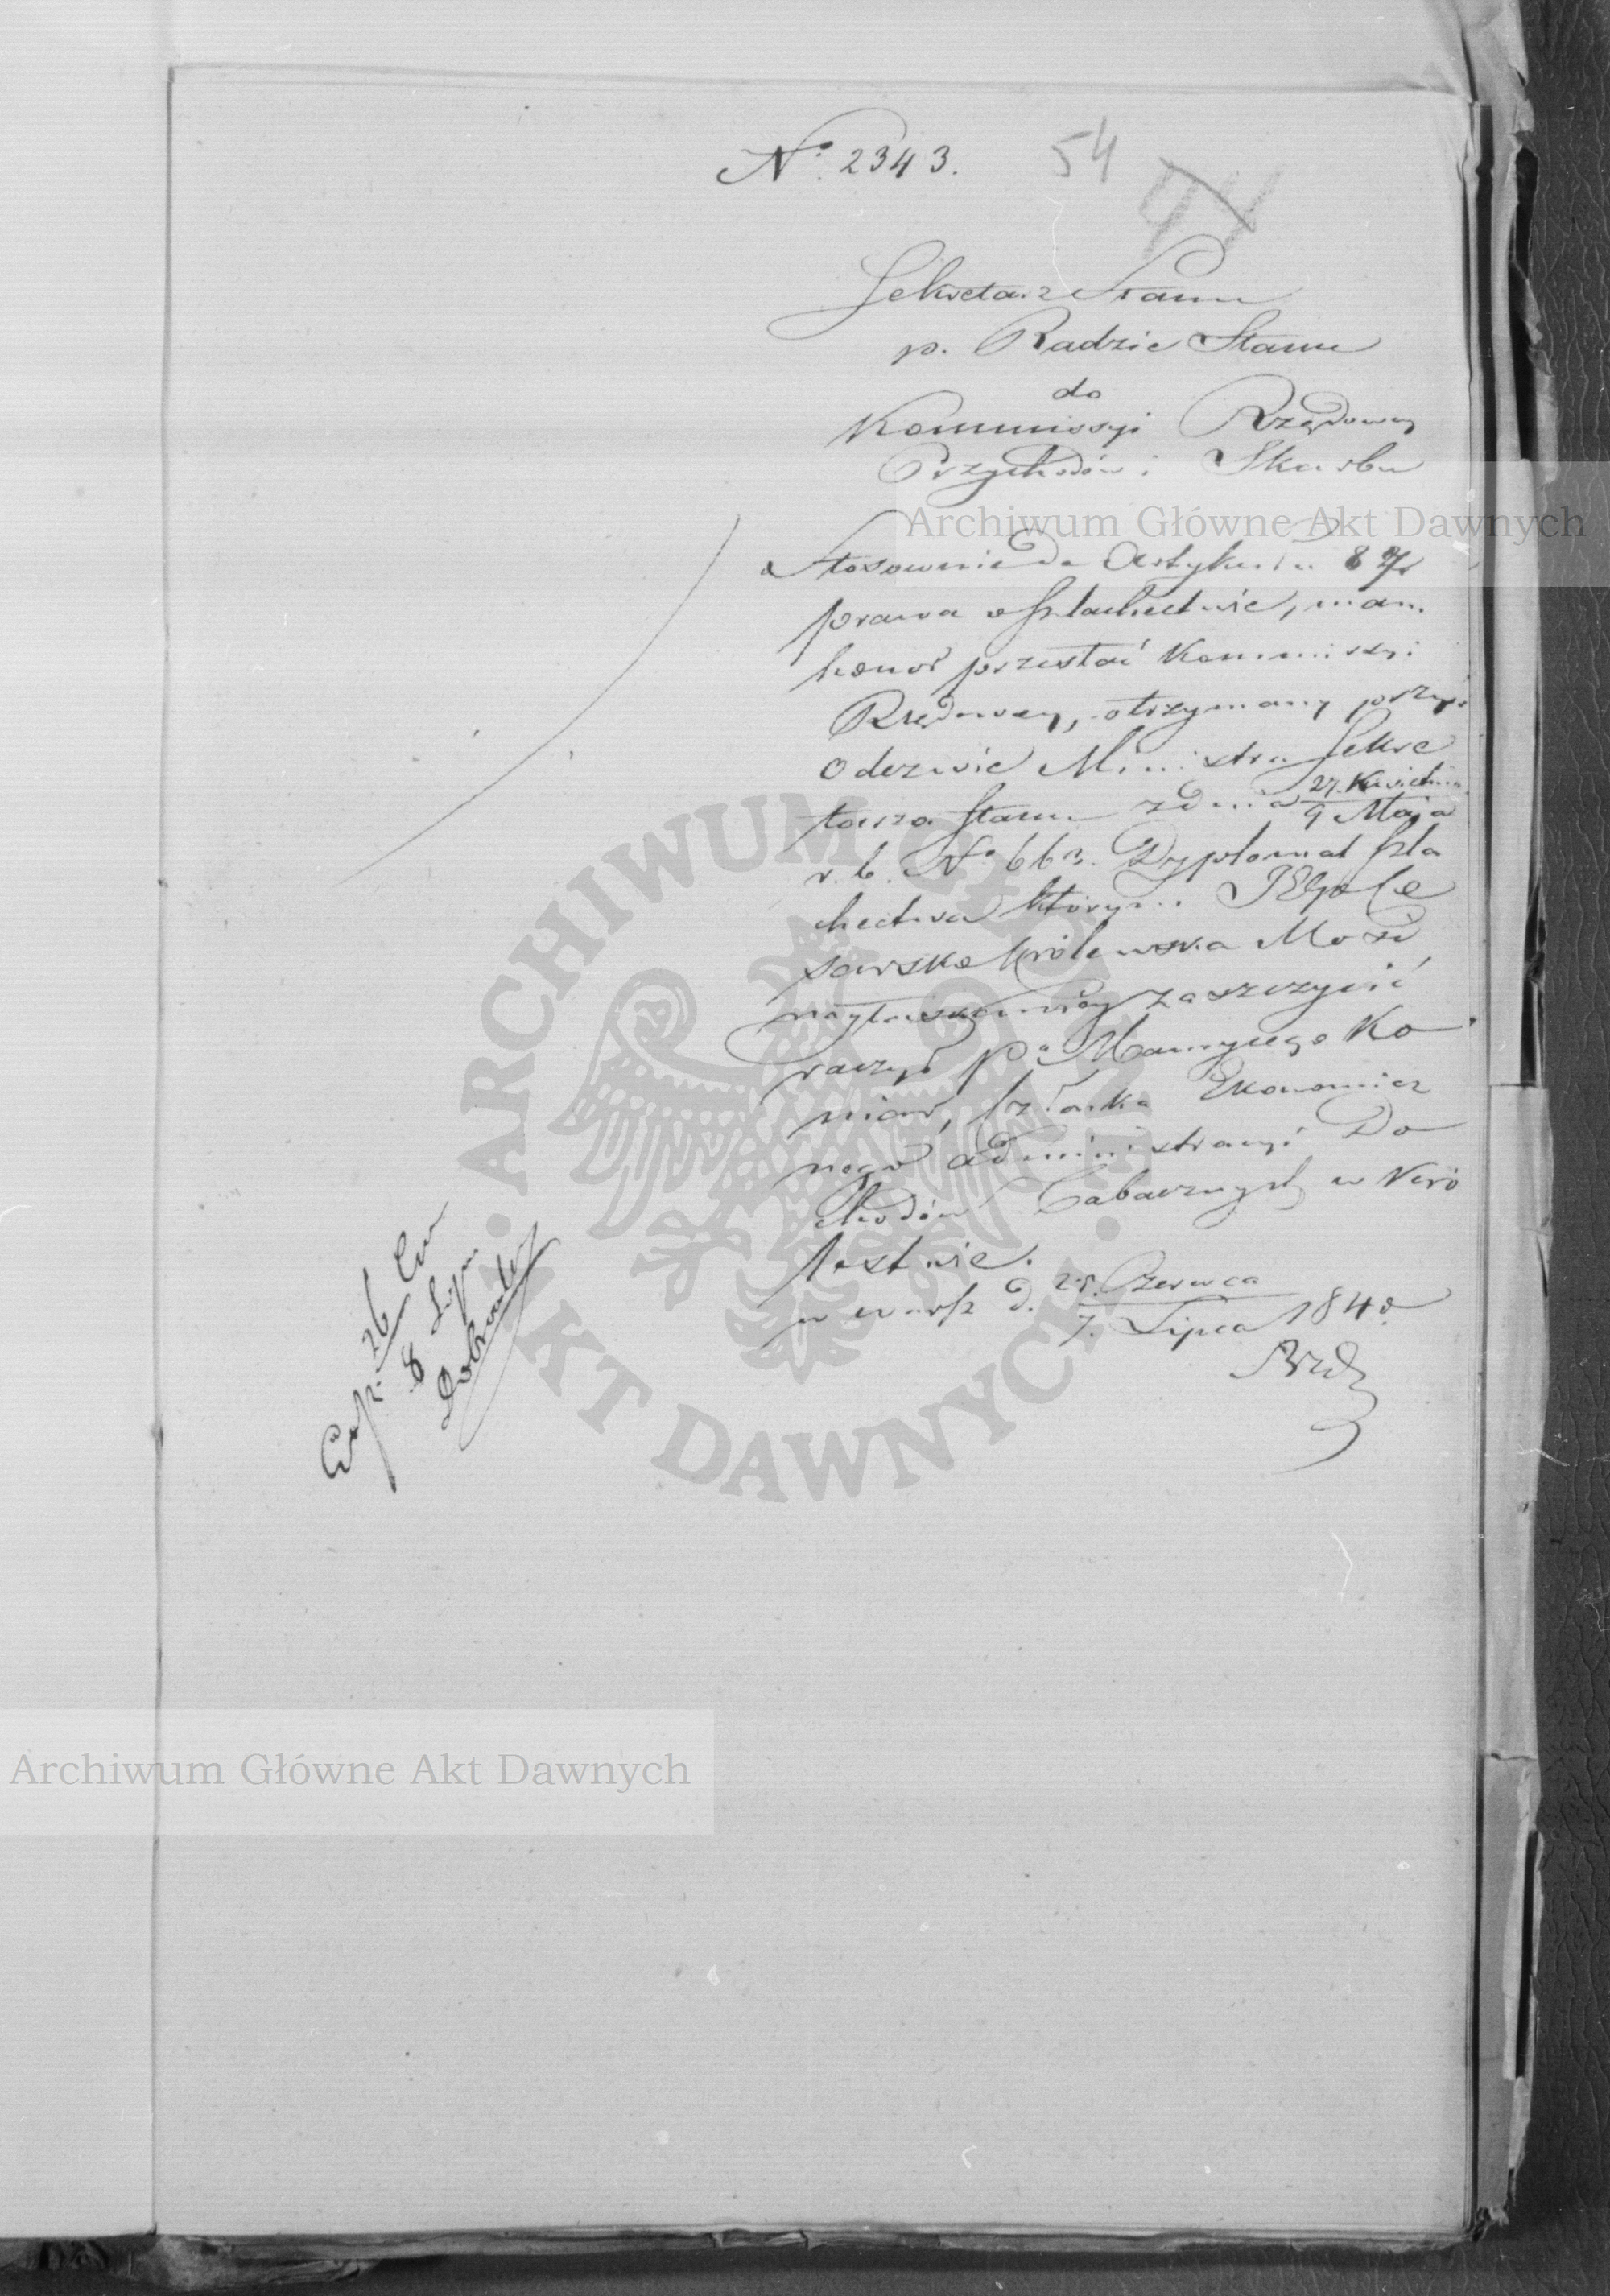 Nº 2343. 54
Sekretarz Stanu
p. Radzie Stanu
do
Kommissyi Rządowey
Przychodów i Skarbu
Archiwum Główne Akt Dawnych
Stosownie do Artykułu 87
prawa o szlachectwie, mam
honor przesłać Kommissyi
Rządowey, otrzymany przy
Odezwie Ministra Sekre
tarza Stanu z dnia 27. Kwietnia
9 Maja
r. b. Nº 663. Dyplomat szla
chectwa którym JEgo Ce
sarsko Królewska Mość
nayłaskawiéy zaszczycić
raczył Pª Maurycego Ko
niar, Członka Ekonomicz
nego Administracyi Do
chodów Tabacznych w Kró
lestwie.
w Warsz d. 25. Czerwca
7. Lipca 1840
Exp. 26 Cze
8 Lipca
ARCHIWUM GŁÓWNE AKT DAWNYCH
Archiwum Główne Akt Dawnych